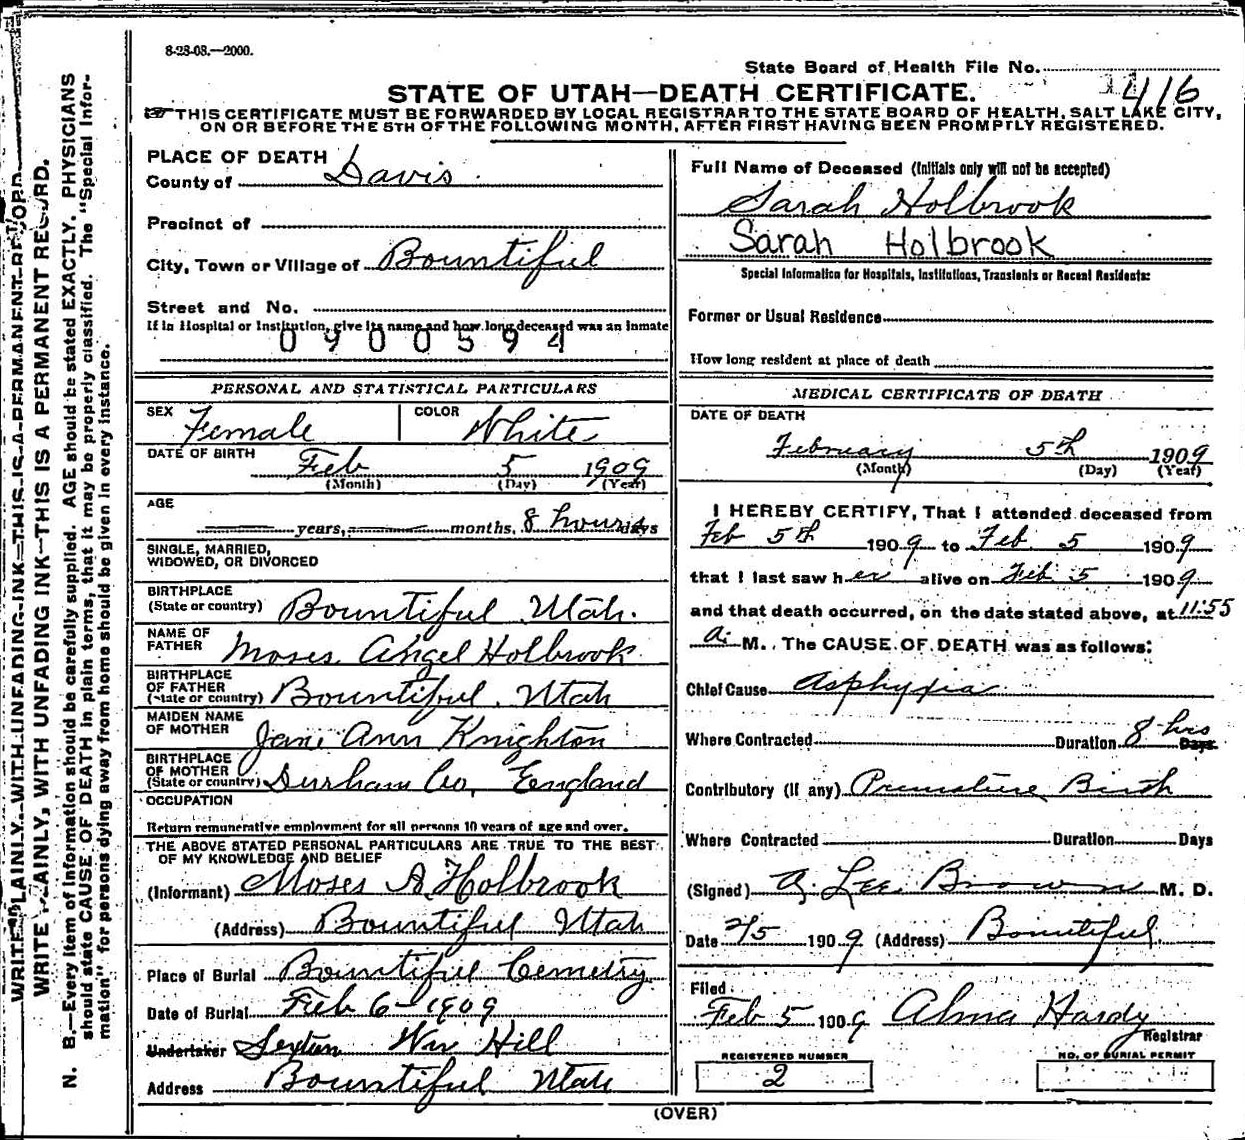 8-28-08.—2000.
State Board of Health File No. 416
STATE OF UTAH—DEATH CERTIFICATE.
THIS CERTIFICATE MUST BE FORWARDED BY LOCAL REGISTRAR TO THE STATE BOARD OF HEALTH, SALT LAKE CITY,
ON OR BEFORE THE 5TH OF THE FOLLOWING MONTH, AFTER FIRST HAVING BEEN PROMPTLY REGISTERED.
PLACE OF DEATH
County of Davis.
Precinct of
City, Town or Village of Bountiful
Street and No.
If in Hospital or Institution, give its name and how long deceased was an inmate
0900594
PERSONAL AND STATISTICAL PARTICULARS
SEX Female COLOR White
DATE OF BIRTH Feb 5 1909
(Month) (Day) (Year)
AGE
years, months, 8 hours days
SINGLE, MARRIED,
WIDOWED, OR DIVORCED
BIRTHPLACE
(State or country) Bountiful Utah.
NAME OF
FATHER Moses Angel Holbrook.
BIRTHPLACE
OF FATHER
(State or country) Bountiful. Utah
MAIDEN NAME
OF MOTHER Jane Ann Knighton
BIRTHPLACE
OF MOTHER
(State or country) Durham Co, England
OCCUPATION
Return remunerative employment for all persons 10 years of age and over.
THE ABOVE STATED PERSONAL PARTICULARS ARE TRUE TO THE BEST
OF MY KNOWLEDGE AND BELIEF
(Informant) Moses A. Holbrook
(Address) Bountiful Utah
Place of Burial Bountiful Cemetry
Date of Burial Feb 6-1909
Undertaker Sexton Wm Hill
Address Bountiful Utah
Full Name of Deceased (Initials only will not be accepted)
Sarah Holbrook
Sarah Holbrook
Special Information for Hospitals, Institutions, Transients or Recent Residents:
Former or Usual Residence
How long resident at place of death
MEDICAL CERTIFICATE OF DEATH
DATE OF DEATH
February 5th 1909
(Month) (Day) (Year)
I HEREBY CERTIFY, That I attended deceased from
Feb 5th 1909 to Feb. 5 1909
that I last saw her alive on Feb 5 1909
and that death occurred, on the date stated above, at 11:55
a. M. The CAUSE OF DEATH was as follows:
Chief Cause Asphyxia
Where Contracted Duration 8 hrs Days
Contributory (If any) Premature Birth
Where Contracted Duration Days
(Signed) A. Lee Brown M. D.
Date 2/5 1909 (Address) Bountiful
Filed
Feb 5 1909 Alma Hardy
Registrar
REGISTERED NUMBER
2
NO. OF BURIAL PERMIT
(OVER)
WRITE PLAINLY, WITH UNFADING INK—THIS IS A PERMANENT RECORD.
WRITE PLAINLY, WITH UNFADING INK—THIS IS A PERMANENT RECORD.
N. B.—Every item of information should be carefully supplied. AGE should be stated EXACTLY. PHYSICIANS
should state CAUSE OF DEATH in plain terms, that it may be properly classified. The "Special Infor-
mation" for persons dying away from home should be given in every instance.